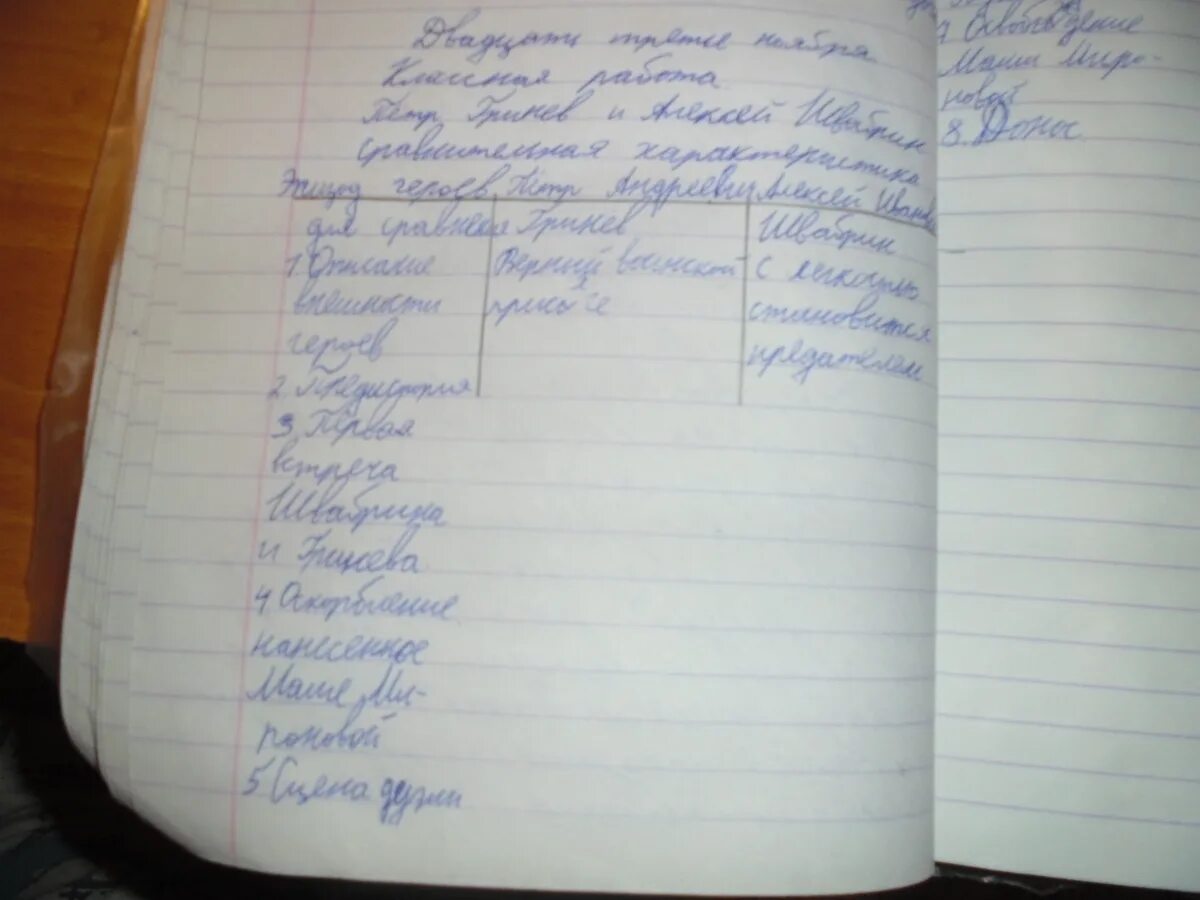 Двадцать третье ноября
Классная работа
Пётр Гринев и Алексей Швабрин
сравнительная характеристика
Эпизод героев Пётр Андреевич Алексей Иванов
для сравнен Гринев Швабрин
1. Описание Верный воинской С легкостью
внешности присяге становится
героев предателем
2. Предистория
3. Первая
встреча
Швабрина
и Гринева
4 Оскорбление
нанесенное
Маше Ми-
роновой
5 Сцена дуэли
7 Освобождение
Маши Миро-
новой
8. Донос